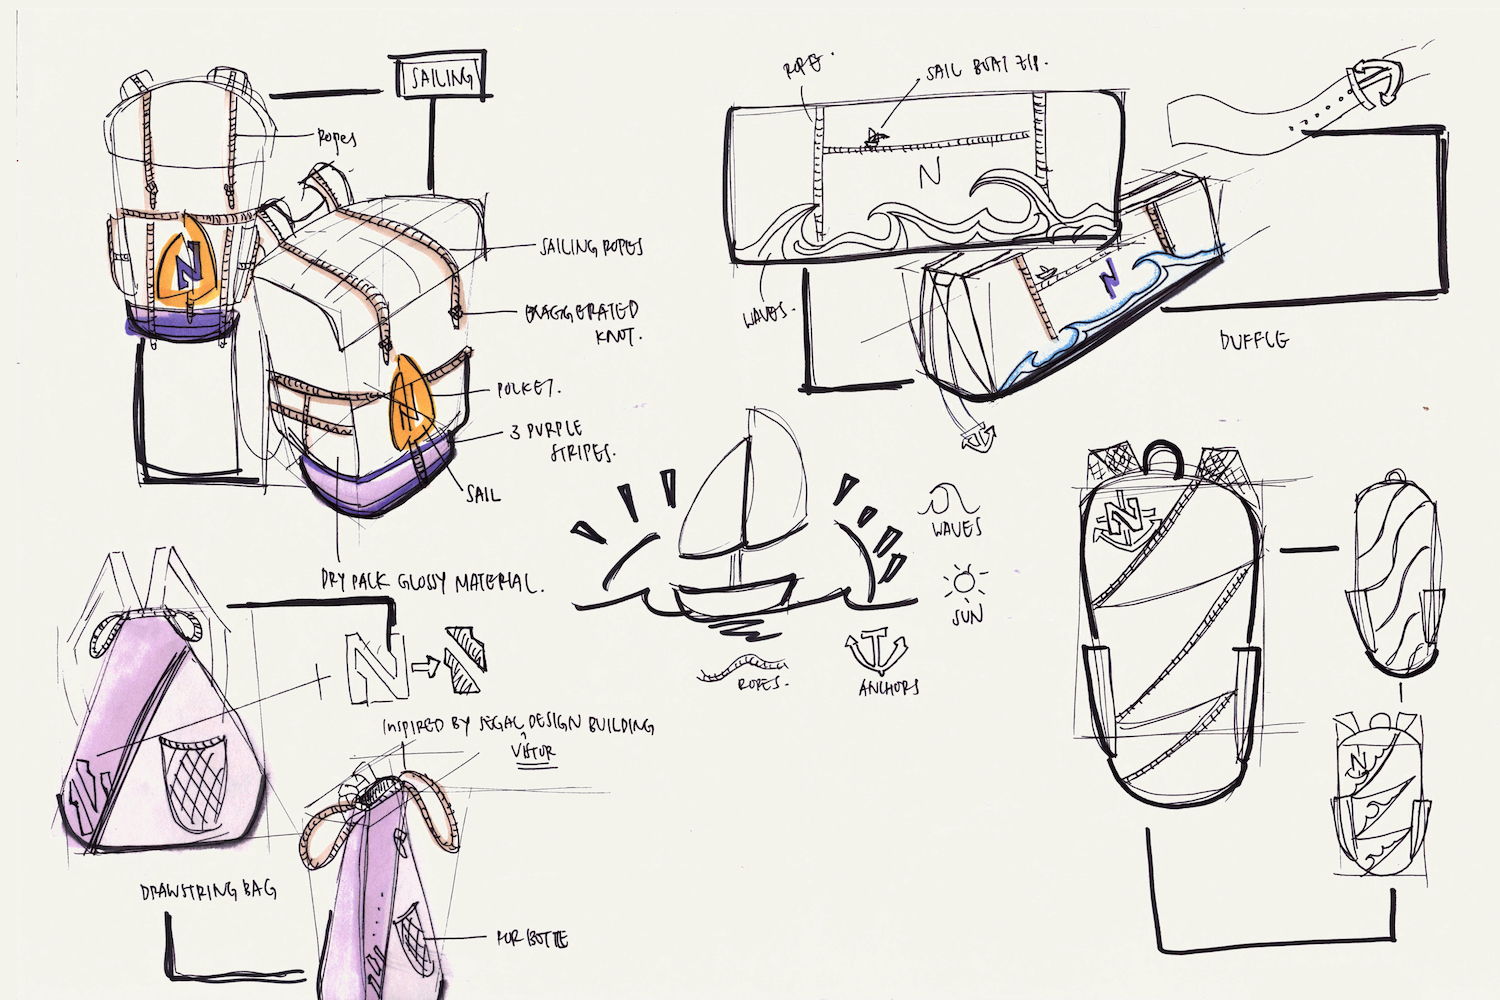 SAILING
ROPES
SAILING ROPES
EXAGGERATED
KNOT.
POCKET.
3 PURPLE
STRIPES.
SAIL
DRY PACK GLOSSY MATERIAL.
N
N
ROPES.
SAIL BOAT ZIP.
N
WAVES.
N
DUFFLE
WAVES
SUN
ROPES.
ANCHORS
N
N
N
N
INSPIRED BY SEGAL DESIGN BUILDING
N
DRAWSTRING BAG
FOR BOTTLE
N